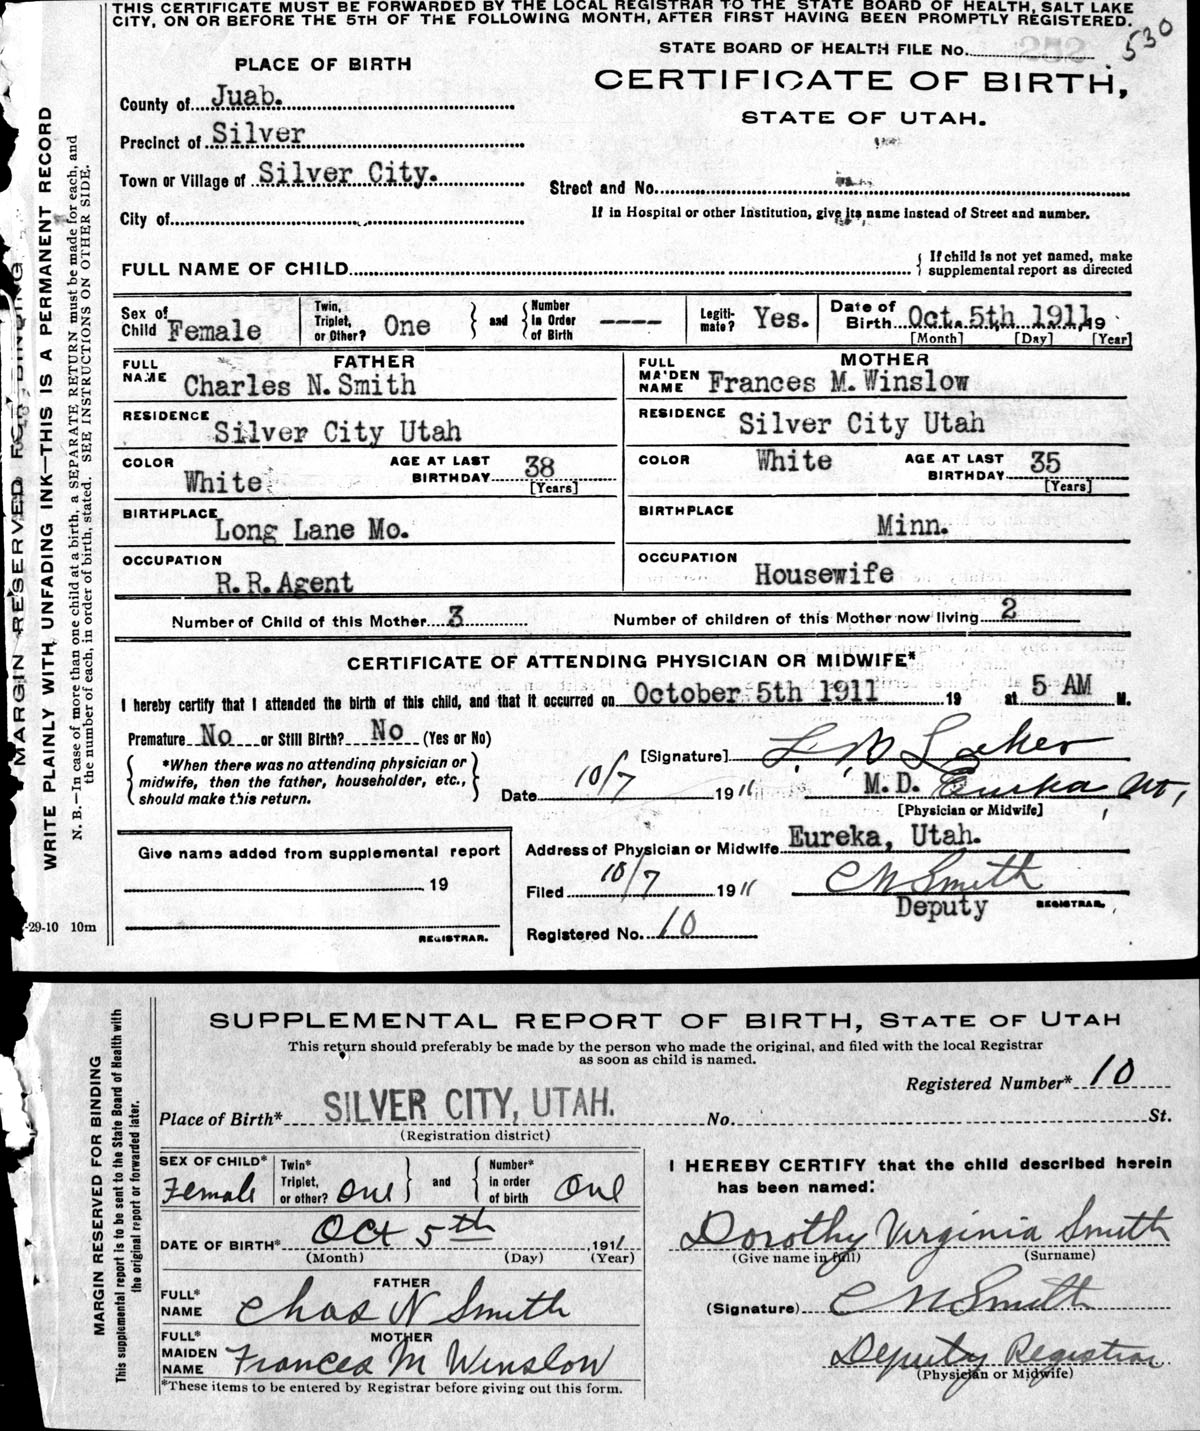 THIS CERTIFICATE MUST BE FORWARDED BY THE LOCAL REGISTRAR TO THE STATE BOARD OF HEALTH, SALT LAKE
CITY, ON OR BEFORE THE 5TH OF THE FOLLOWING MONTH, AFTER FIRST HAVING BEEN PROMPTLY REGISTERED.
530
STATE BOARD OF HEALTH FILE No.
PLACE OF BIRTH
CERTIFICATE OF BIRTH,
STATE OF UTAH.
County of Juab.
Precinct of Silver
Town or Village of Silver City.
Street and No.
City of
If in Hospital or other Institution, give its name instead of Street and number.
FULL NAME OF CHILD
If child is not yet named, make
supplemental report as directed
Sex of Child Female
Twin, Triplet, or Other? One
and
Number in Order of Birth ----
Legiti-mate? Yes.
Date of Birth Oct. 5th 1911 19
[Month] [Day] [Year]
FATHER
FULL NAME Charles N. Smith
MOTHER
FULL MAIDEN NAME Frances M. Winslow
RESIDENCE Silver City Utah
RESIDENCE Silver City Utah
COLOR White
AGE AT LAST BIRTHDAY 38
[Years]
COLOR White
AGE AT LAST BIRTHDAY 35
[Years]
BIRTHPLACE Long Lane Mo.
BIRTHPLACE Minn.
OCCUPATION R.R.Agent
OCCUPATION Housewife
Number of Child of this Mother 3
Number of children of this Mother now living 2
CERTIFICATE OF ATTENDING PHYSICIAN OR MIDWIFE*
I hereby certify that I attended the birth of this child, and that it occurred on October 5th 1911 19 at 5 AM M.
Premature No or Still Birth? No (Yes or No)
*When there was no attending physician or
midwife, then the father, householder, etc.,
should make this return.
[Signature]
Date 10/7 1911
M.D. Eureka Ut,
[Physician or Midwife]
Give name added from supplemental report
19
REGISTRAR.
Address of Physician or Midwife Eureka, Utah.
Filed 10/7 1911 C N Smith
Deputy REGISTRAR.
Registered No. 10
MARGIN RESERVED FOR BINDING
WRITE PLAINLY WITH UNFADING INK—THIS IS A PERMANENT RECORD
N. B.—In case of more than one child at a birth, a SEPARATE RETURN must be made for each, and
the number of each, in order of birth, stated. SEE INSTRUCTIONS ON OTHER SIDE.
-29-10 10m
SUPPLEMENTAL REPORT OF BIRTH, STATE OF UTAH
This return should preferably be made by the person who made the original, and filed with the local Registrar
as soon as child is named.
Registered Number* 10
Place of Birth* SILVER CITY, UTAH. No. St.
(Registration district)
SEX OF CHILD* Female
Twin* Triplet, or other? One
and
Number* in order of birth One
DATE OF BIRTH* Oct 5th 1911
(Month) (Day) (Year)
FATHER
FULL* NAME Chas N Smith
MOTHER
FULL* MAIDEN NAME Frances M Winslow
*These items to be entered by Registrar before giving out this form.
I HEREBY CERTIFY that the child described herein
has been named:
Dorothy Virginia Smith
(Give name in full) (Surname)
(Signature) C N Smith
Deputy Registrar
(Physician or Midwife)
MARGIN RESERVED FOR BINDING
This supplemental report is to be sent to the State Board of Health with
the original report or forwarded later.